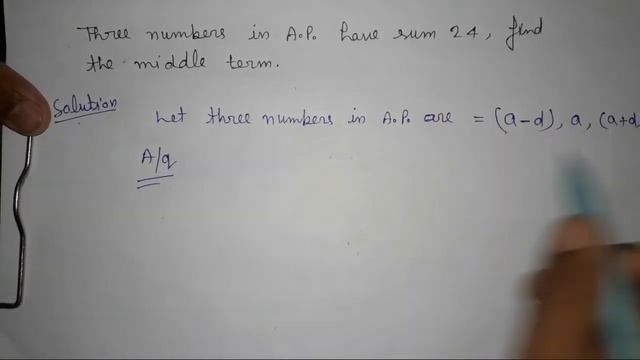 Three numbers in A.P. have sum 24, find
the middle term.
Solution Let three numbers in A.P. are = (a-d), a, (a+d
A/q